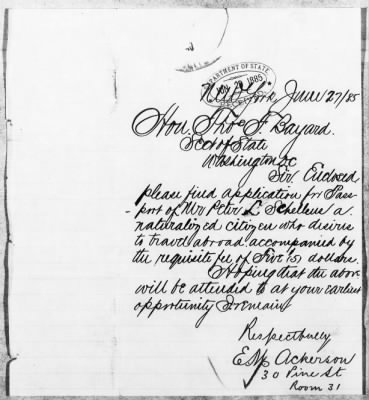 DEPARTMENT OF STATE
1885
New York, June 27/85
Hon. Thos F. Bayard.
Sect of State
Washington DC
Sir. Enclosed
please find application for Pass-
-port of Mr Peter L a
naturalized citizen who desires
to travel abroad accompanied by
the requisite fee of Five (5) dollars.
Hoping that the above
will be attended to at your earliest
opportunity I remain
Respectfully
Ackerson
30 Pine St
Room 31